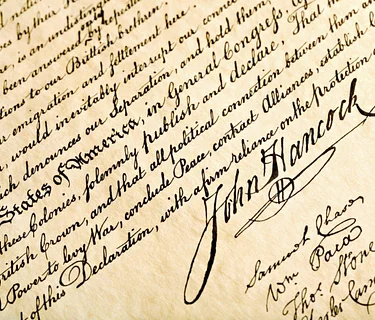 is an undistinguished
been answered by
tions to our Brittish brethren.
emigration and settlement here.
would inevitably interrupt our
which denounces our Separation, and hold them,
States of America, in General Congress,
these Colonies, solemnly publish and declare, That
British Crown, and that all political connection between them
Power to levy War, conclude Peace, contract Alliances, establish
of this Declaration, with a firm reliance on the protection
John Hancock
Samuel Chase
Wm Paca
Thos Stone